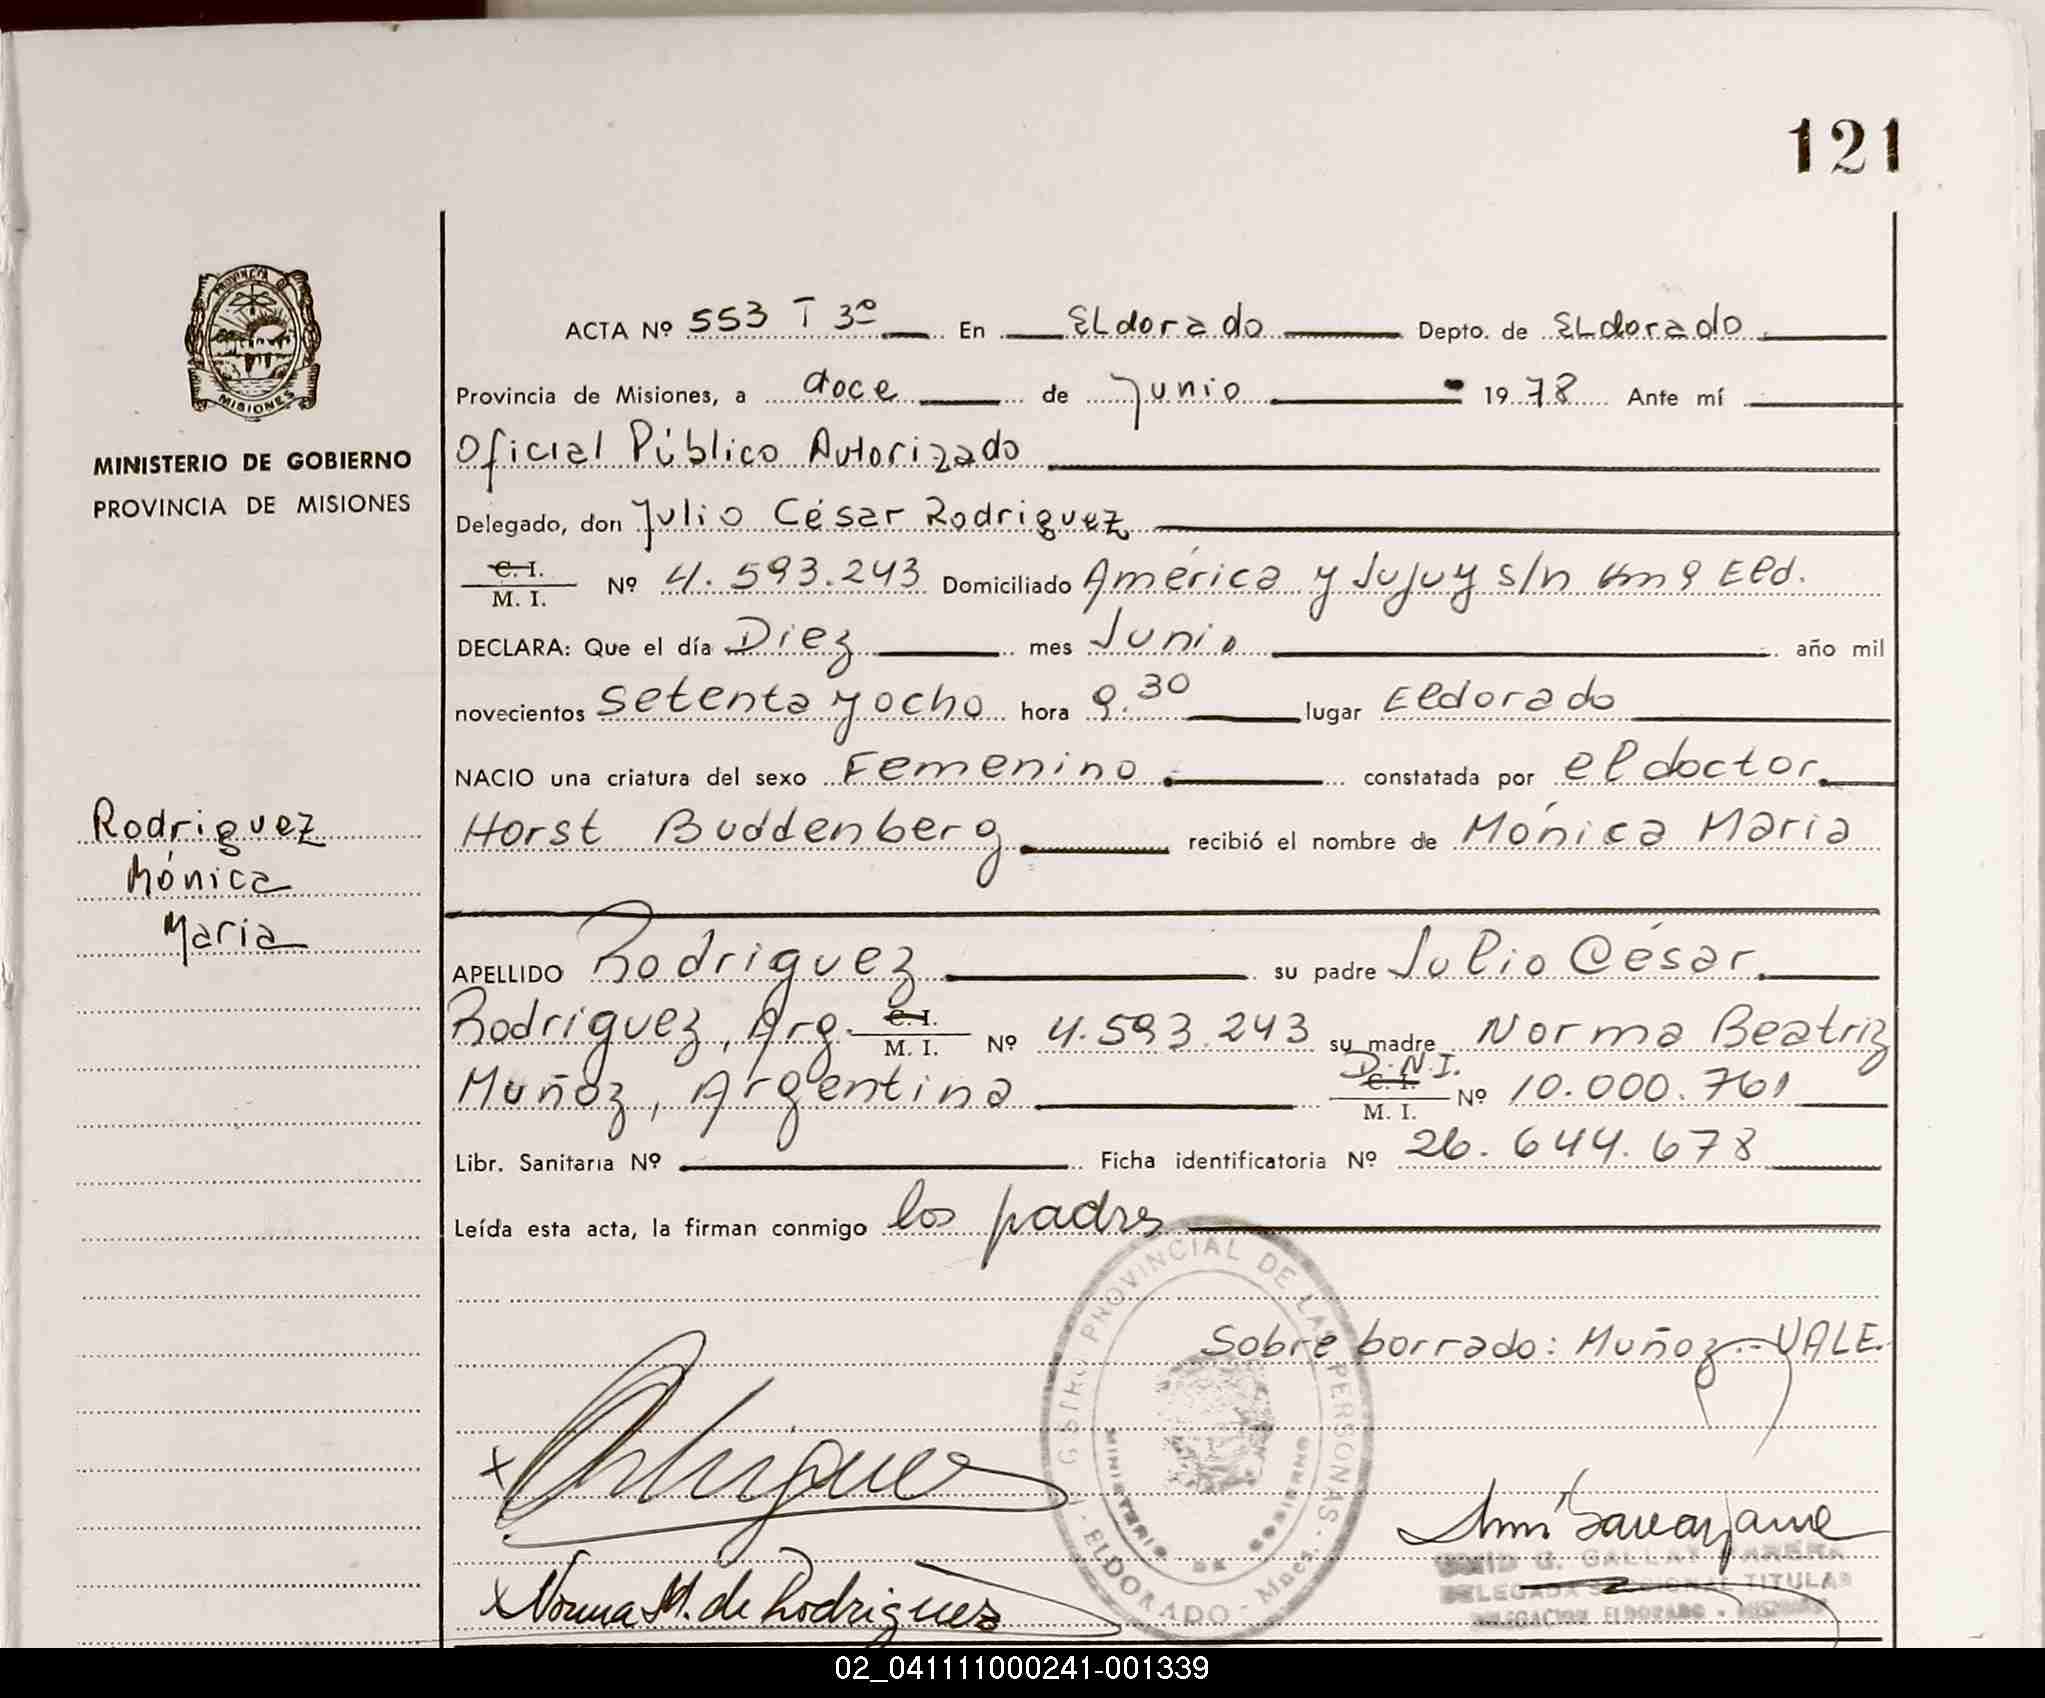 121
PROVINCIA DE
MISIONES
MINISTERIO DE GOBIERNO
PROVINCIA DE MISIONES
Rodriguez
Mónica
Maria
ACTA Nº 553 T 3º En ELdorado Depto. de ELdorado
Provincia de Misiones, a doce de Junio 1978 Ante mí
Oficial Público Autorizado
Delegado, don Julio César Rodriguez
C. I.
M. I. Nº 4.593.243 Domiciliado América y Jujuy s/n Km 9 Eld.
DECLARA: Que el día Diez mes Junio año mil
novecientos Setenta y ocho hora 9.30 lugar Eldorado
NACIO una criatura del sexo Femenino constatada por el doctor
Horst Buddenberg recibió el nombre de Mónica Maria
APELLIDO Rodriguez su padre Julio César
Rodriguez, Arg. C. I. M. I. Nº 4.593.243 su madre Norma Beatriz
Muñoz, Argentina D.N.I. C. I. M. I. Nº 10.000.761
Libr. Sanitaria Nº Ficha identificatoria Nº 26.644.678
Leída esta acta, la firman conmigo los padres
Sobre borrado: Muñoz.- VALE.
PROVINCIAL DE LAS PERSONAS
MINISTERIO DE GOBIERNO
ELDORADO - Mnes.
x Rodriguez
x Norma M. de Rodriguez
G. GALLAY
DELEGADA SECCIONAL TITULAR
DELEGACION ELDORADO - MISIONES
02_041111000241-001339